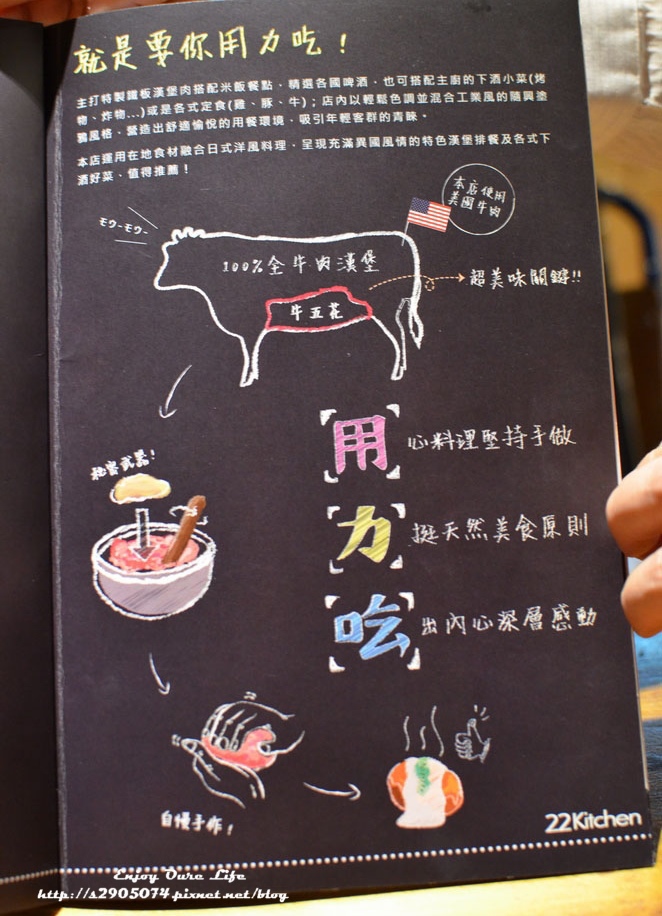 就是要你用力吃！
主打特製鐵板漢堡肉搭配米飯餐點，精選各國啤酒，也可搭配主廚的下酒小菜(烤
物、炸物...)或是各式定食(雞、豚、牛)；店內以輕鬆色調並混合工業風的隨興塗
鴉風格，營造出舒適愉悅的用餐環境，吸引年輕客群的青睞。
本店運用在地食材融合日式洋風料理，呈現充滿異國風情的特色漢堡排餐及各式下
酒好菜，值得推薦！
本店使用
美國牛肉
モウーモウー
100%全牛肉漢堡
牛五花
超美味關鍵!!
用心料理堅持手做
秘密武器!
力挺天然美食原則
吃出內心深層感動
自慢手作!
22Kitchen
Enjoy Oure Life
http://s2905074.pixnet.net/blog